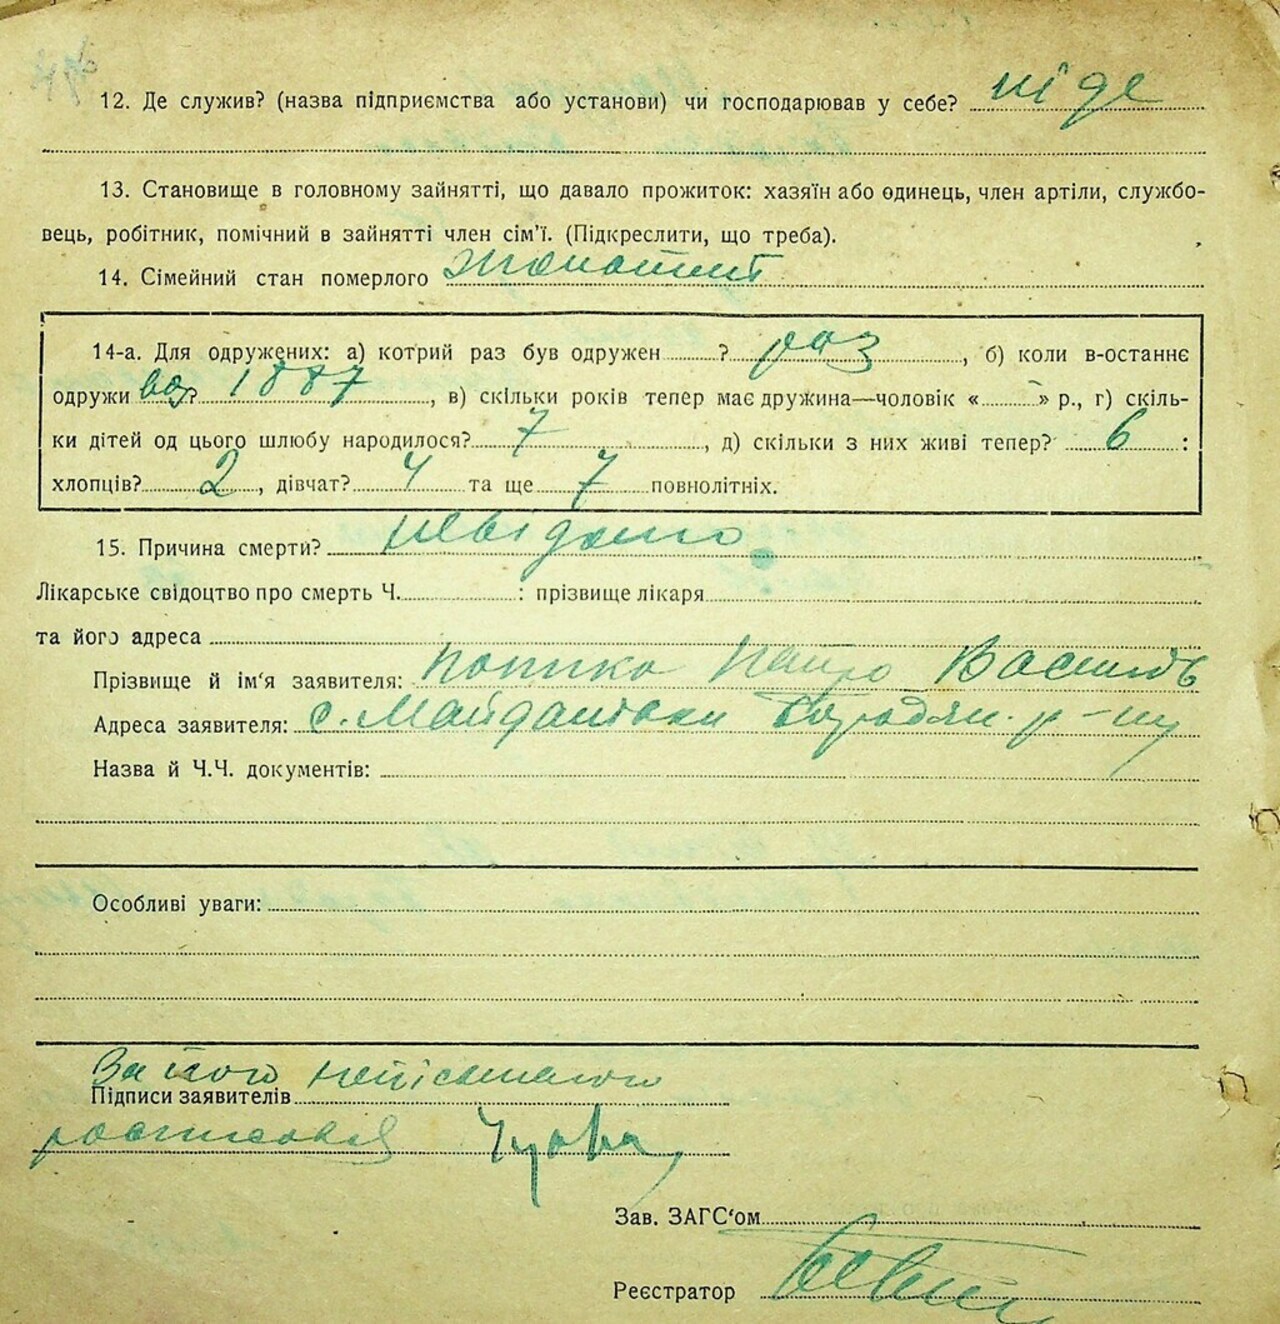 12. Де служив? (назва підприємства або установи) чи господарював у себе? ніде
13. Становище в головному зайнятті, що давало прожиток: хазяїн або одинець, член артіли, службо-
вець, робітник, помічний в зайнятті член сім'ї. (Підкреслити, що треба).
14. Сімейний стан померлого жонатий
14-а. Для одружених: а) котрий раз був одружен ? раз, б) коли в-останнє
одружи вся? 1887, в) скільки років тепер має дружина—чоловік « » р., г) скіль-
ки дітей од цього шлюбу народилося? 7, д) скільки з них живі тепер? 6 :
хлопців? 2, дівчат? 4 та ще 7 повнолітніх.
15. Причина смерти? невідомо
Лікарське свідоцтво про смерть Ч. : прізвище лікаря
та його адреса
Прізвище й ім'я заявителя: Петро Василь
Адреса заявителя: с. Майданівки Бородян. р-ну
Назва й Ч.Ч. документів:
Особливі уваги:
За його неписьменого
Підписи заявителів
росписався
Зав. ЗАГС'ом
Реєстратор